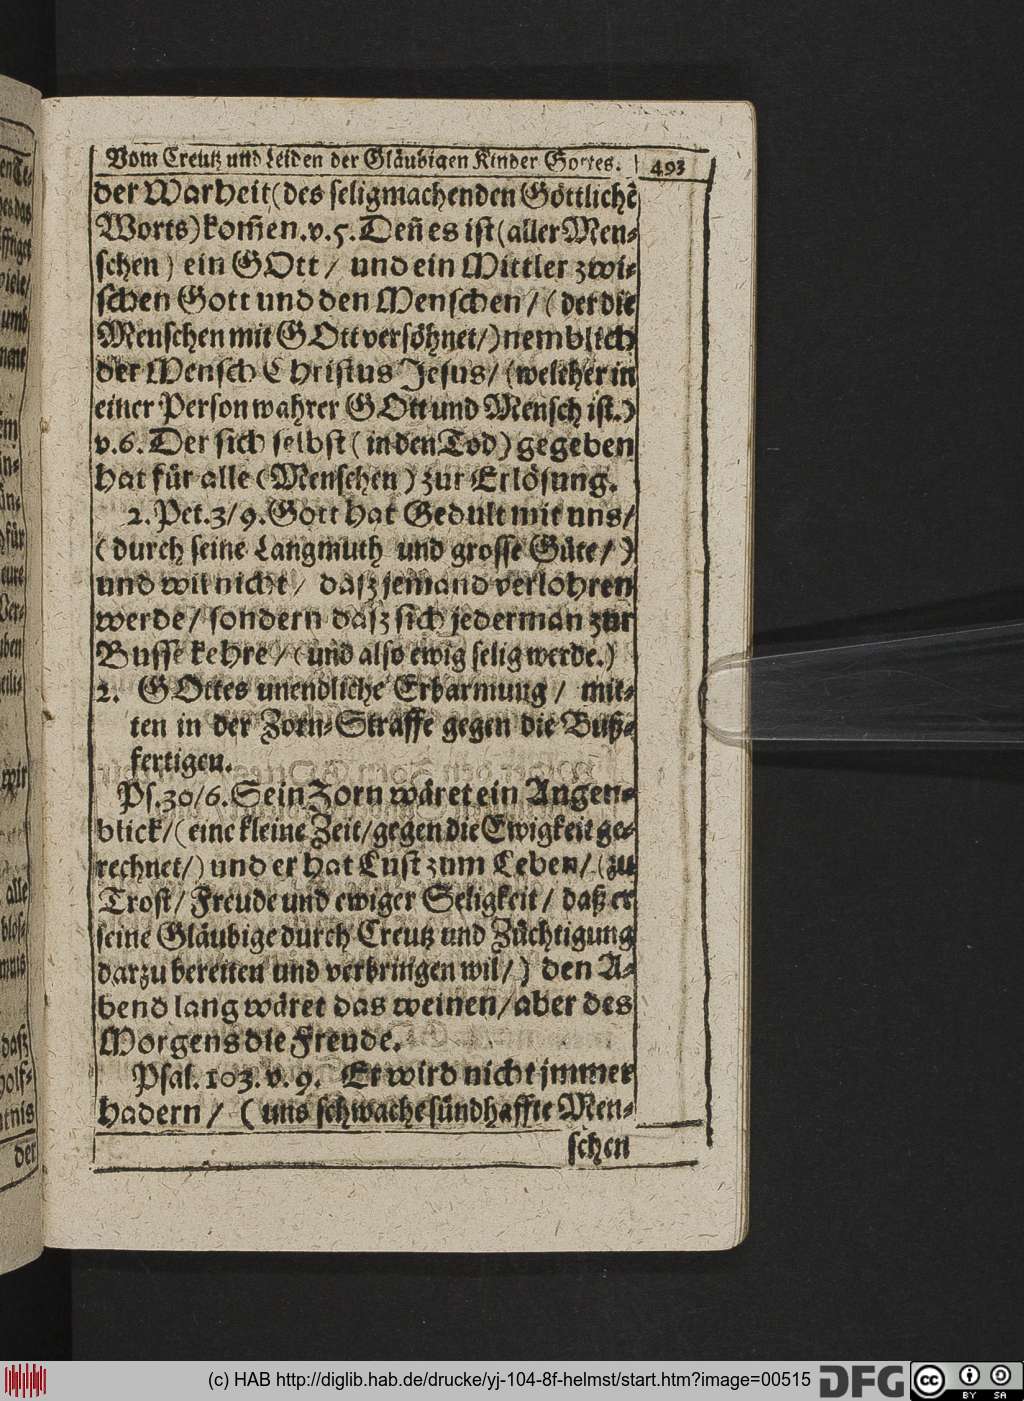 Vom Creutz und Leiden der Gläubigen Kinder Gottes. 493
der Warheit (des seligmachenden Göttlichẽ
Worts) kom̃en. v. 5. Deñ es ist (aller Men-
schen) ein GOtt / und ein Mittler zwi-
schen Gott und den Menschen / (der die
Menschen mit GOtt versöhnet /) nemblich
der Mensch CHristus Jesus / (welcher in
einer Person wahrer GOtt und Mensch ist.)
v. 6. Der sich selbst (in den Tod) gegeben
hat für alle (Menschen) zur Erlösung.
2. Pet. 3 / 9. Gott hat Gedult mit uns /
(durch seine Langmuth und grosse Güte /)
und wil nicht / daß jemand verlohren
werde / sondern daß sich jederman zur
Busse kehre / (und also ewig selig werde.)
2. GOttes unendliche Erbarmung / mit-
ten in der Zorn-Straffe gegen die Buß-
fertigen.
Ps. 30 / 6. Sein Zorn wäret ein Augen-
blick / (eine kleine Zeit / gegen die Ewigkeit ge-
rechnet /) und er hat Lust zum Leben / (zu
Trost / Freude und ewiger Seligkeit / daß er
seine Gläubige durch Creutz und Züchtigung
darzu bereiten und verbringen wil /) den A-
bend lang wäret das weinen / aber des
Morgens die Freude.
Psal. 103. v. 9. Er wird nicht jmmer
hadern / (uns schwache sündhaffte Men-
schen
(c) HAB http://diglib.hab.de/drucke/yj-104-8f-helmst/start.htm?image=00515 DFG cc BY SA